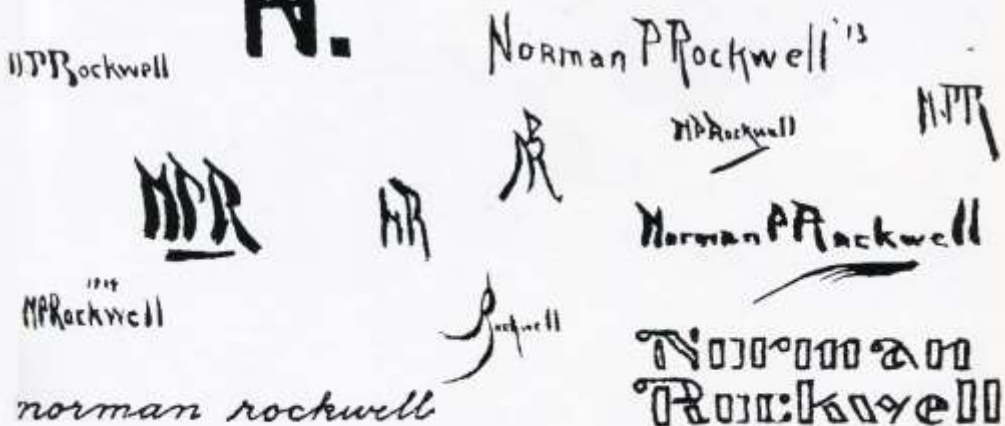 R.
NPRockwell
Norman PRockwell '13
NPR
NPRockwell
NPR
NPR
NR
Norman PRockwell
1914
NPRockwell
Rockwell
Norman
Rockwell
norman rockwell